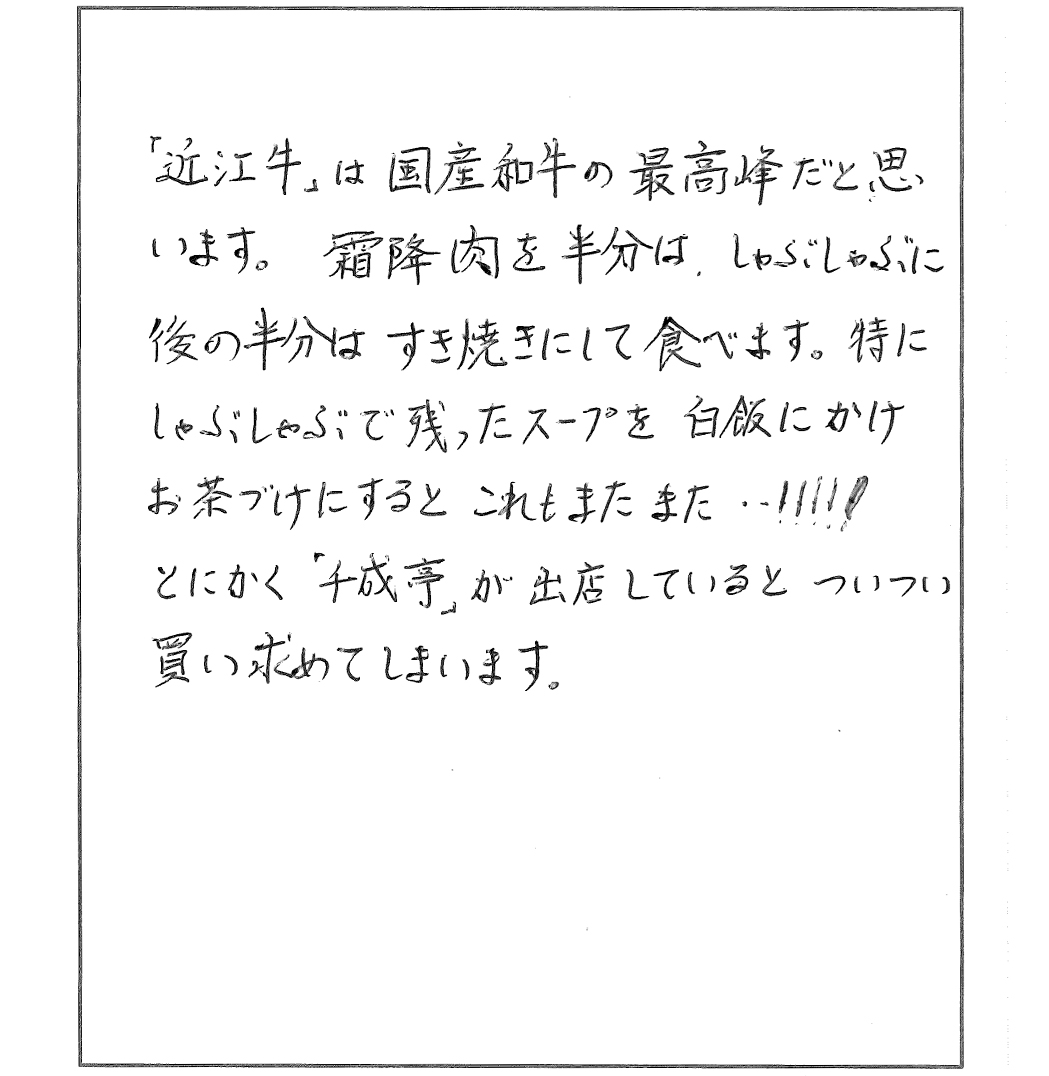 「近江牛」は国産和牛の最高峰だと思
います。 霜降肉を半分は、しゃぶしゃぶに
後の半分はすき焼きにして食べます。特に
しゃぶしゃぶで残ったスープを 白飯にかけ
お茶づけにすると これもまたまた・・!!!!!
とにかく「千成亭」が出店していると ついつい
買い求めてしまいます。